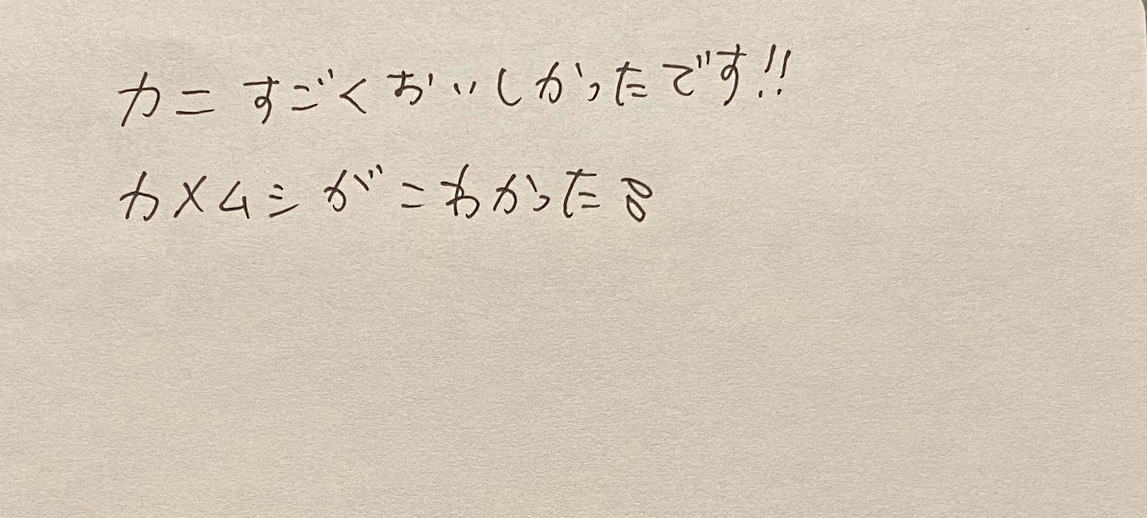 カニすごくおいしかったです!!
カメムシがこわかった